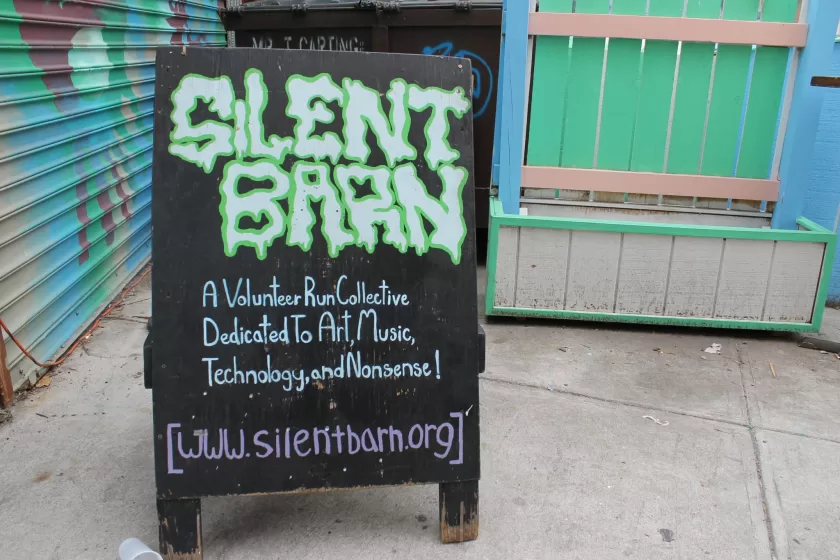 MR. T CARTING
SILENT
BARN
A Volunteer Run Collective
Dedicated To Art, Music,
Technology, and Nonsense!
[www.silentbarn.org]